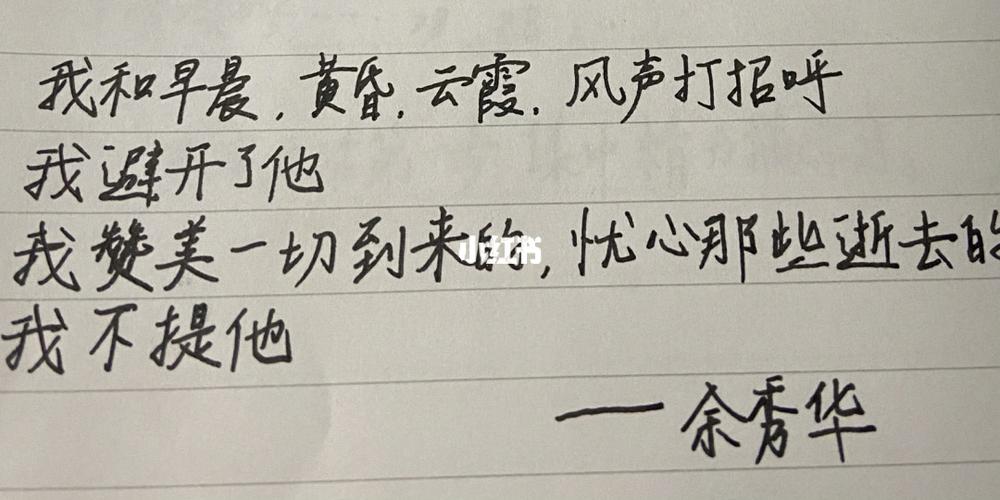 我和早晨,黄昏,云霞,风声打招呼
我避开了他
我赞美一切到来的,忧心那些逝去的
小红书
我不提他
——余秀华